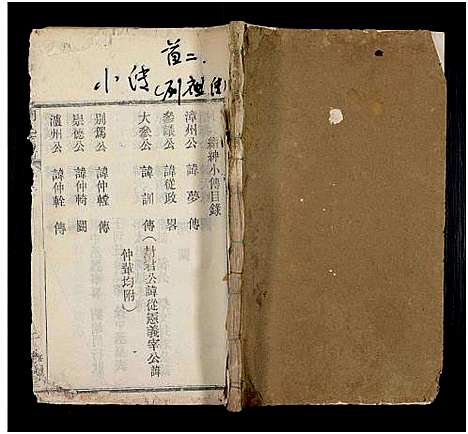 首二
小传(列祖传
縉紳小傳目錄
漳州公 諱夢 傳
參議公 諱從政 畧
大參公 諱訓 傳(封君公諱從憲義宰公諱
仲輦均附)
別駕公 諱仲輕 傳
崇德公 諱仲輢 闕
瀘州公 諱仲輇 傳